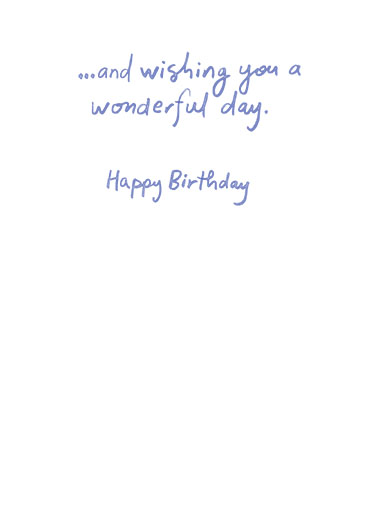 ...and wishing you a
wonderful day.
Happy Birthday